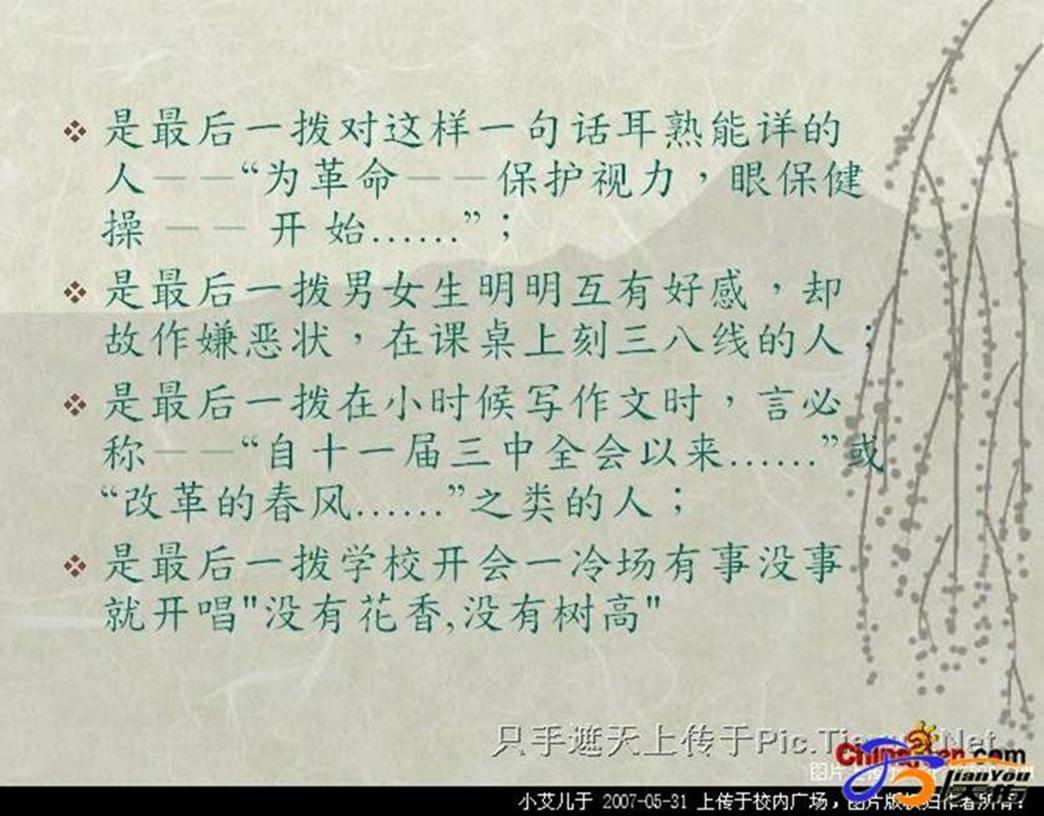 是最后一拨对这样一句话耳熟能详的
人——“为革命——保护视力，眼保健
操 —— 开 始……”；
是最后一拨男女生明明互有好感，却
故作嫌恶状，在课桌上刻三八线的人；
是最后一拨在小时候写作文时，言必
称——“自十一届三中全会以来……”或
“改革的春风……”之类的人；
是最后一拨学校开会一冷场有事没事
就开唱"没有花香,没有树高"
只手遮天上传于Pic.
JianYou
小艾儿于 2007-05-31 上传于校内广场，图片版权归作者所有！